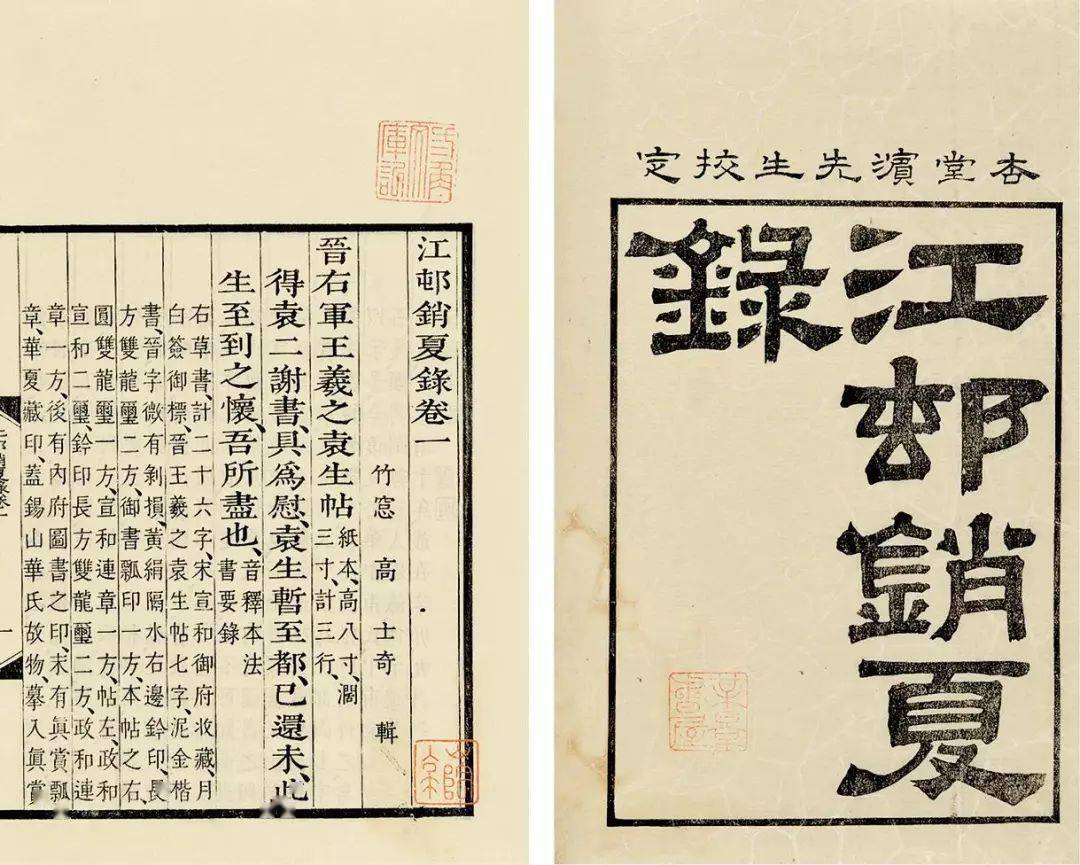 杏堂濵先生校定
江邨銷夏
錄
江邨銷夏錄卷一
竹窓 高士奇 輯
晉右軍王羲之袁生帖紙本、高八寸、濶三寸、計三行、
得袁二謝書、具爲慰、袁生暫至都、已還未、此
生至到之懷、吾所盡也、音釋本法書要錄
右草書、計二十六字、宋宣和御府收藏、月
白簽御標、晉王羲之袁生帖七字、泥金楷
書、晉字微有剝損、黃絹隔水右邊鈐印、長
方雙龍璽二方、御書瓢印一方、本帖之右、
圓雙龍璽一方、宣和連章一方、帖左、政和
宣和二璽、鈐印長方雙龍璽二方、政和連
章一方、後有內府圖書之印、末有眞賞瓢
章、華夏藏印、蓋錫山華氏故物、摹入眞賞